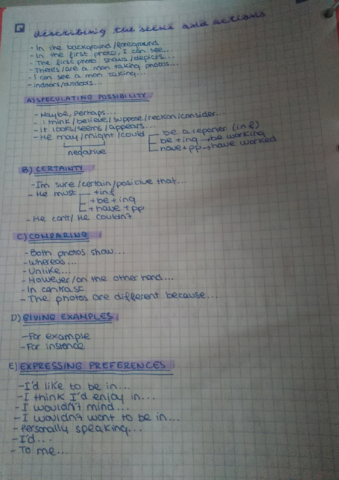 describing the scene and actions
- In the background/foreground
- In the first photo, I can see...
- The first photo shows/depicts...
- There is/are a man taking photos...
- I can see a man taking...
- indoors/outdoors...
A) SPECULATING POSSIBILITY
- Maybe, Perhaps...
- I think/believe/suppose/reckon/consider...
- It looks/seems/appears...
- He may/might/could be a reporter (inf)
be + ing → be working
negative have + pp → have worked
B) CERTAINTY
- I'm sure/certain/positive that...
- He must + inf
+ be + ing
+ have + pp
- He can't/He couldn't
C) COMPARING
- Both photos show...
- whereas...
- Unlike...
- However/on the other hand...
- In contrast
- The photos are different because...
D) GIVING EXAMPLES
- For example
- For instance
E) EXPRESSING PREFERENCES
- I'd like to be in...
- I think I'd enjoy in...
- I wouldn't mind...
- I wouldn't want to be in...
- Personally speaking...
- I'd...
- To me...